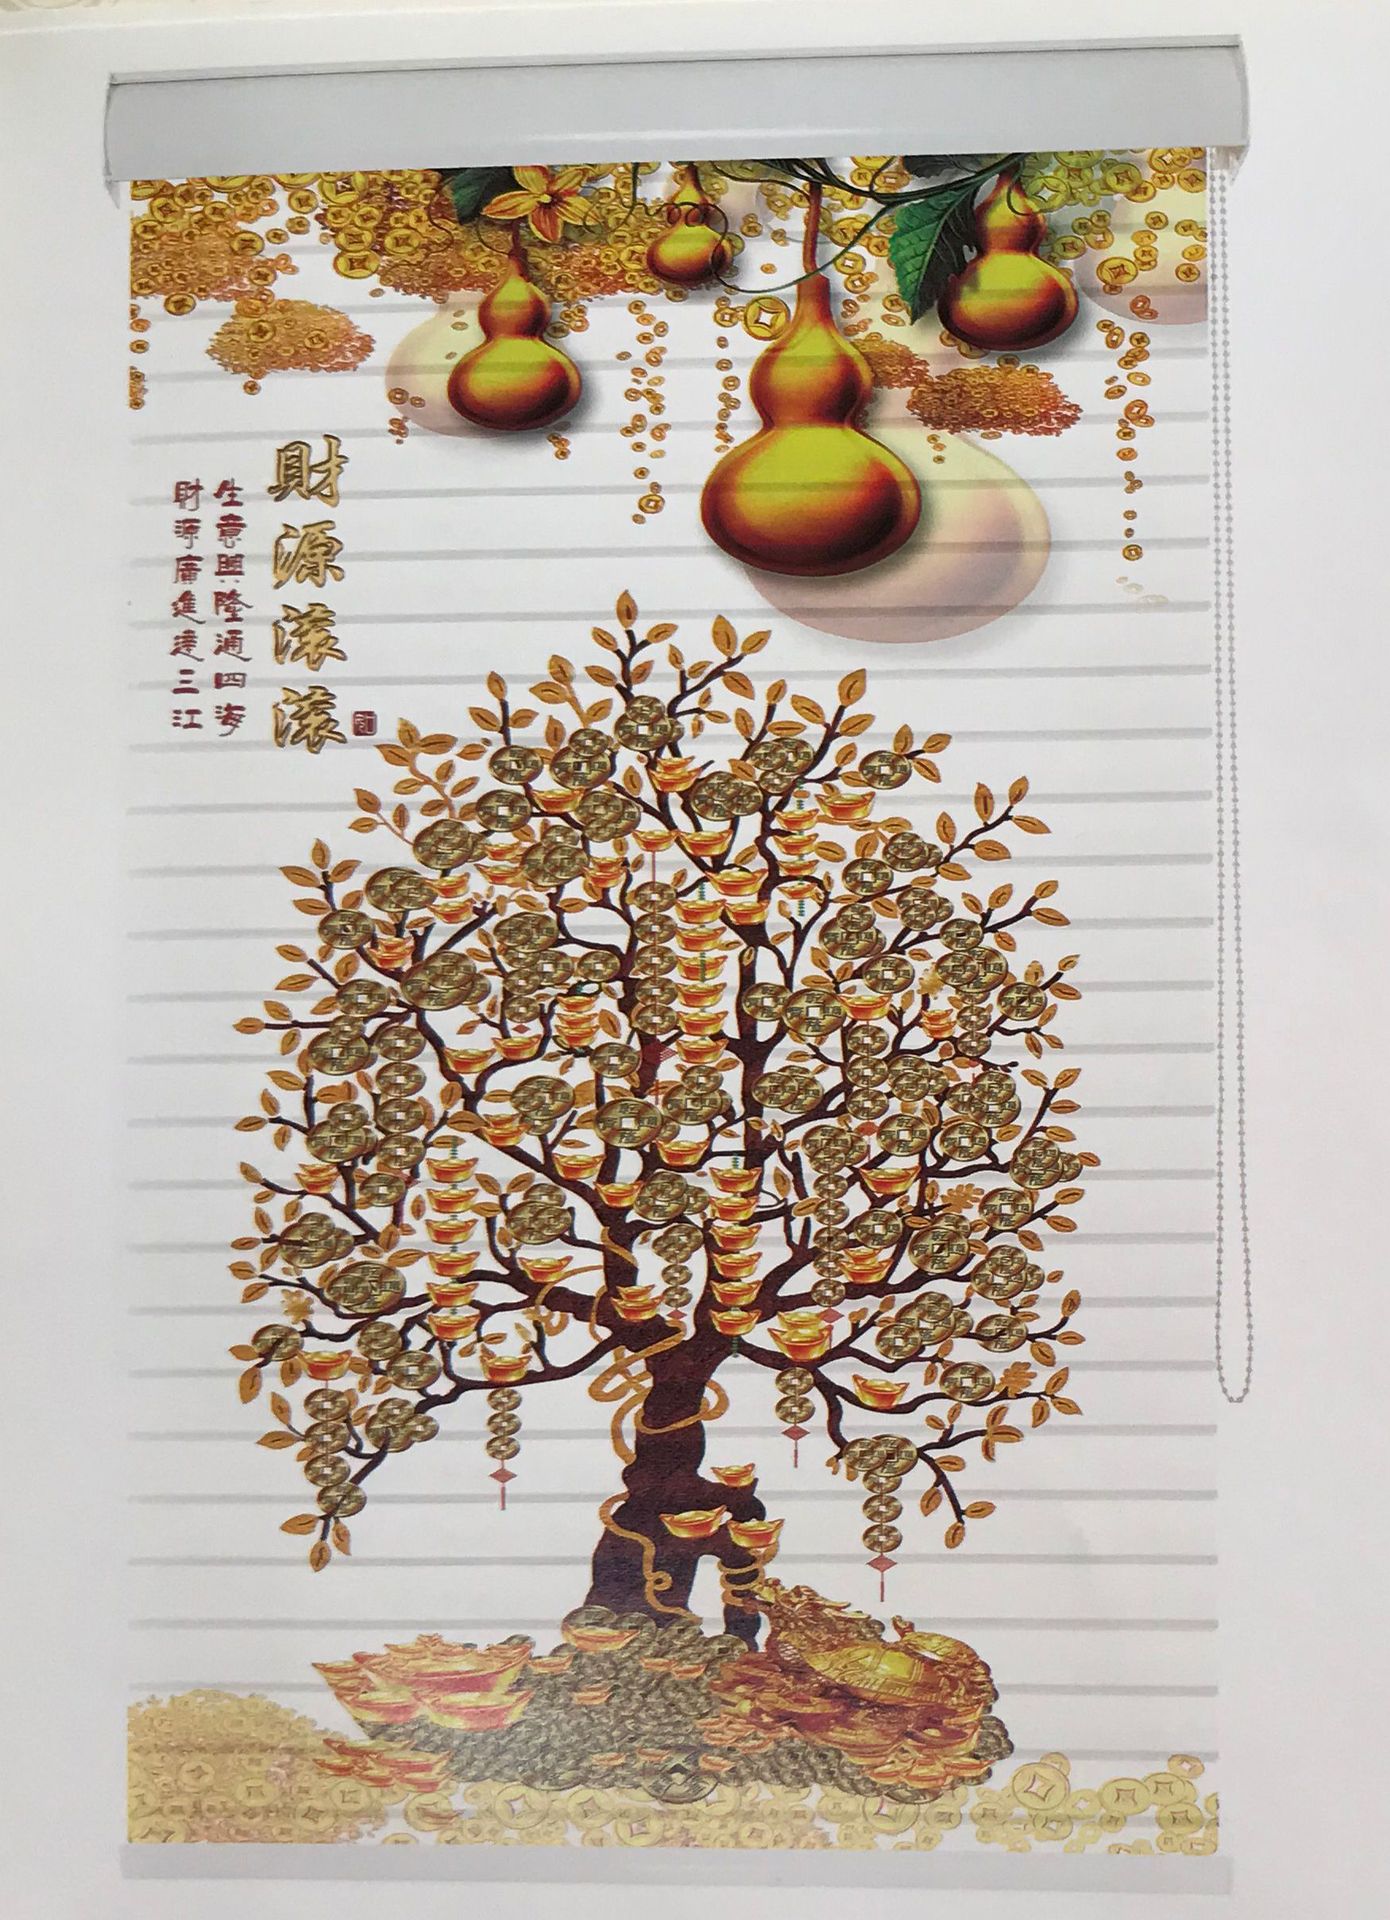 財源滾滾
生意興隆通四海
財源廣進達三江